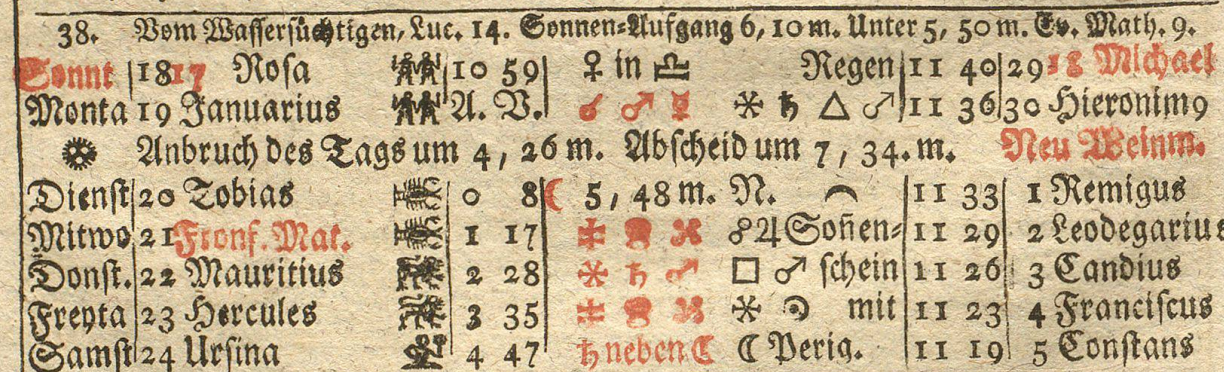 38. Vom Wassersüchtigen, Luc. 14. Sonnen-Aufgang 6, 10 m. Unter 5, 50 m. Ev. Math. 9.
Sonnt 18 17 Rosa 10 59 ♀ in ♎ Regen 11 40 29 18 Michael
Monta 19 Januarius A. V. ☌ ♂ ☿ ⚹ ♄ △ ♂ 11 36 30 Hieronim9
Anbruch des Tags um 4, 26 m. Abscheid um 7, 34. m. Neu Weinm.
Dienst 20 Tobias 0 8 ☾ 5, 48 m. N. 11 33 1 Remigus
Mitwo 21 Fronf. Mat. 1 17 ☍ ♃ Soñen- 11 29 2 Leodegarius
Donst. 22 Mauritius 2 28 ⚹ ♄ ♂ □ ♂ schein 11 26 3 Candius
Freyta 23 Hercules 3 35 ⚹ mit 11 23 4 Franciscus
Samst 24 Ursina 4 47 ♄ neben ☾ ☾ Perig. 11 19 5 Constans